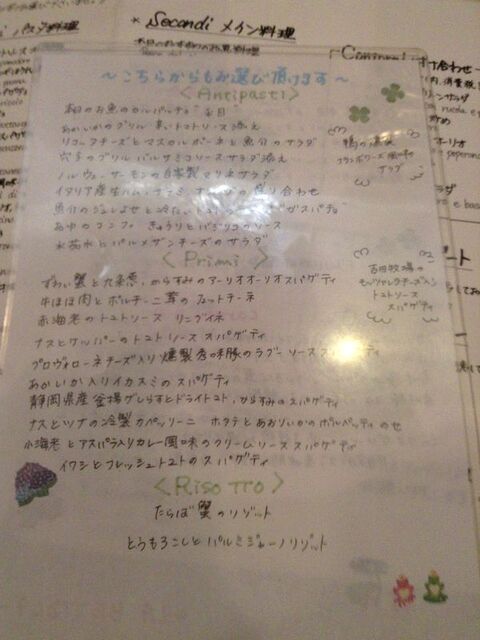 * Secondi メイン料理
～こちらからもお選び頂けます～
<Antipasti>
本日のお魚のカルパッチョ
あかいかのグリル 辛いトマトソース添え
リコッタチーズとマスカルポーネと魚介のサラダ
穴子のグリル バルサミコソース サラダ添え
ノルウェーサーモンの自家製マリネサラダ
イタリア産生ハム、サラミ、の盛り合わせ
魚介のジュレよせと冷たいトマトの"ガスパチョ"
あゆのコンフィ きゅうりとバジリコのソース
水茄子とパルメザンチーズのサラダ
鴨の燻製
フランボワーズ風味の
サラダ
<Primi>
ずわい蟹と九条葱、からすみのアーリオオーリオスパゲティ
牛ほほ肉とポルチーニ茸のフェットチーネ
赤海老のトマトソース リングイネ
ナスとケッパーのトマトソース スパゲティ
プロヴォローネチーズ入り 燻製香味豚のラグーソース
あかいか入りイカスミのスパゲティ
静岡県産 釜揚げしらすとドライトマト、からすみのスパゲティ
ナスとツナの冷製カペッリーニ ホタテとあおりいかのポルペッティのせ
小海老とアスパラ入りカレー風味のクリームソース スパゲティ
イワシとフレッシュトマトのスパゲティ
吉田牧場の
モッツァレラチーズ入り
トマトソース
スパゲティ
<Risotto>
たらば蟹のリゾット
とうもろこしとパルミジャーノリゾット